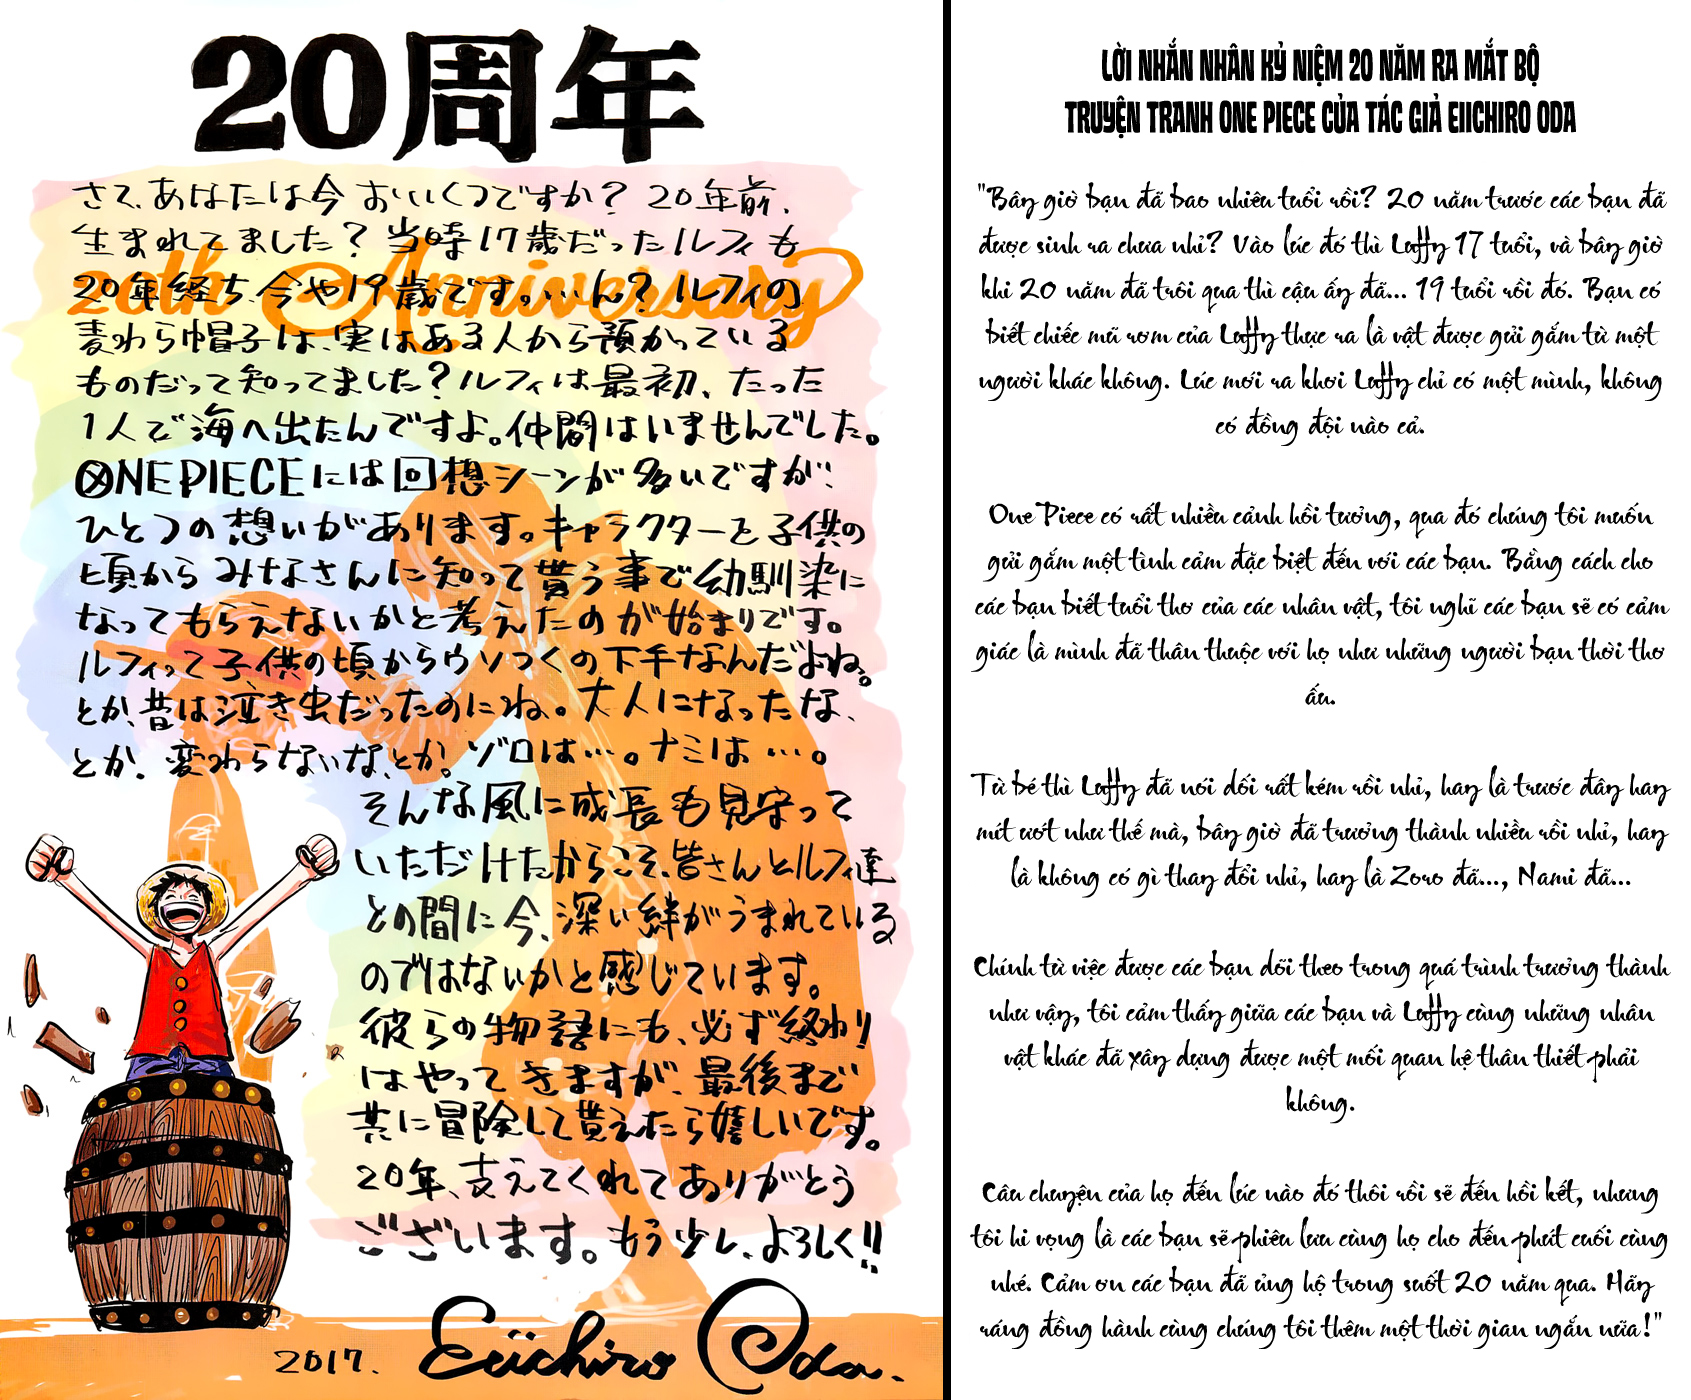 20周年
20th Anniversary
さて、あなたは今おいくつですか？20年前、
生まれてました？当時17歳だったルフィも
20年経ち、今や19歳です。…ん？ルフィの
麦わら帽子は、実はある人から預かっている
ものだって知ってました？ルフィは最初、たった
1人で海へ出たんですよ。仲間はいませんでした。
ONE PIECEには回想シーンが多いですが、
ひとつの想いがあります。キャラクターを子供の
頃からみなさんに知って貰う事で幼馴染に
なってもらえないかと考えたのが始まりです。
ルフィって子供の頃からウソつくの下手なんだよね。
とか、昔は泣き虫だったのにね。大人になったな、
とか、変わらないな、とか。ゾロは…。ナミは…。
そんな風に成長も見守って
いただけたからこそ、皆さんとルフィ達
との間に今、深い絆がうまれている
のではないかと感じています。
彼らの物語にも、必ず終わり
はやってきますが、最後まで
共に冒険して貰えたら嬉しいです。
20年、支えてくれてありがとう
ございます。もう少し、よろしく!!
2017. Eiichiro Oda.
LỜI NHẮN NHÂN KỶ NIỆM 20 NĂM RA MẮT BỘ
TRUYỆN TRANH ONE PIECE CỦA TÁC GIẢ EIICHIRO ODA
"Bây giờ bạn đã bao nhiêu tuổi rồi? 20 năm trước các bạn đã
được sinh ra chưa nhỉ? Vào lúc đó thì Luffy 17 tuổi, và bây giờ
khi 20 năm đã trôi qua thì cậu ấy đã... 19 tuổi rồi đó. Bạn có
biết chiếc mũ rơm của Luffy thực ra là vật được gửi gắm từ một
người khác không. Lúc mới ra khơi Luffy chỉ có một mình, không
có đồng đội nào cả.
One Piece có rất nhiều cảnh hồi tưởng, qua đó chúng tôi muốn
gửi gắm một tình cảm đặc biệt đến với các bạn. Bằng cách cho
các bạn biết tuổi thơ của các nhân vật, tôi nghĩ các bạn sẽ có cảm
giác là mình đã thân thuộc với họ như những người bạn thời thơ
ấu.
Từ bé thì Luffy đã nói dối rất kém rồi nhỉ, hay là trước đây hay
mít ướt như thế mà, bây giờ đã trưởng thành nhiều rồi nhỉ, hay
là không có gì thay đổi nhỉ, hay là Zoro đã..., Nami đã...
Chính từ việc được các bạn dõi theo trong quá trình trưởng thành
như vậy, tôi cảm thấy giữa các bạn và Luffy cùng những nhân
vật khác đã xây dựng được một mối quan hệ thân thiết phải
không.
Câu chuyện của họ đến lúc nào đó thôi rồi sẽ đến hồi kết, nhưng
tôi hi vọng là các bạn sẽ phiêu lưu cùng họ cho đến phút cuối cùng
nhé. Cảm ơn các bạn đã ủng hộ trong suốt 20 năm qua. Hãy
ráng đồng hành cùng chúng tôi thêm một thời gian ngắn nữa!"